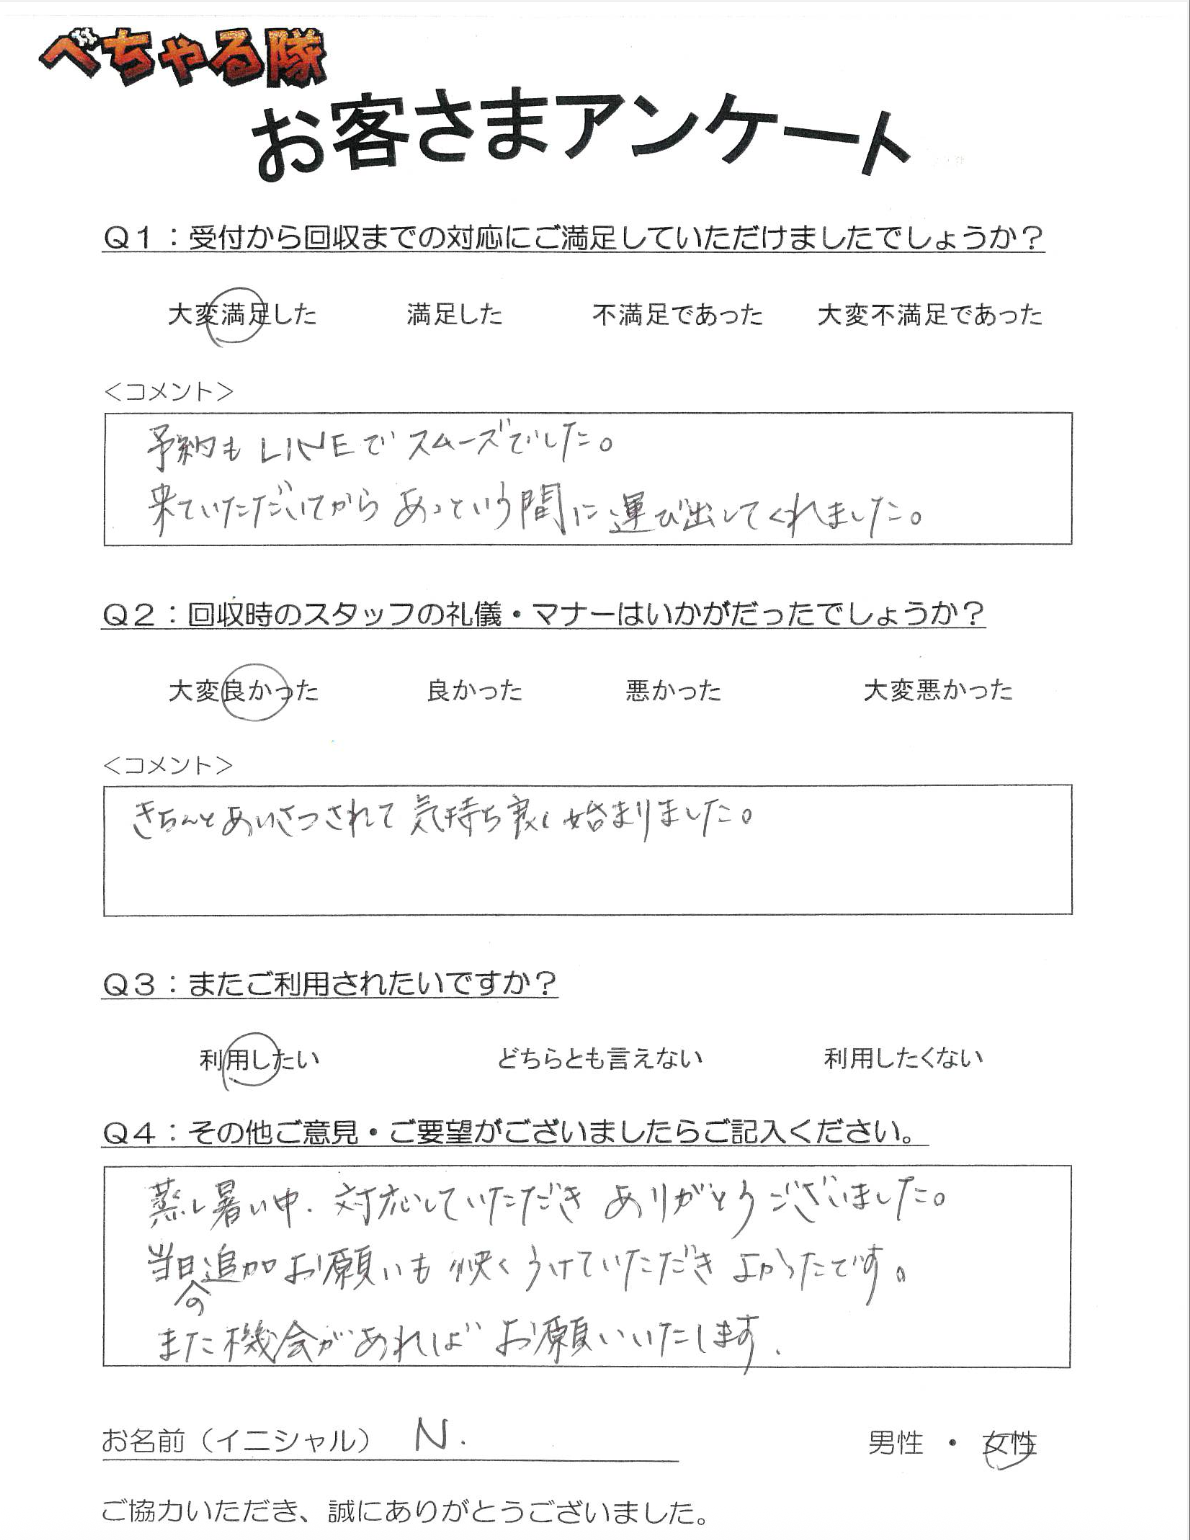 べちゃる隊
お客さまアンケート
Q1：受付から回収までの対応にご満足していただけましたでしょうか？
大変満足した 満足した 不満足であった 大変不満足であった
＜コメント＞
予約もLINEでスムーズでした。
来ていただいてからあっという間に運び出してくれました。
Q2：回収時のスタッフの礼儀・マナーはいかがだったでしょうか？
大変良かった 良かった 悪かった 大変悪かった
＜コメント＞
きちんとあいさつされて気持ち良く始まりました。
Q3：またご利用されたいですか？
利用したい どちらとも言えない 利用したくない
Q4：その他ご意見・ご要望がございましたらご記入ください。
蒸し暑い中、対応していただきありがとうございました。
当日の追加お願いも快くうけていただきよかったです。
また機会があればお願いいたします.
お名前（イニシャル） N. 男性 ・ 女性
ご協力いただき、誠にありがとうございました。